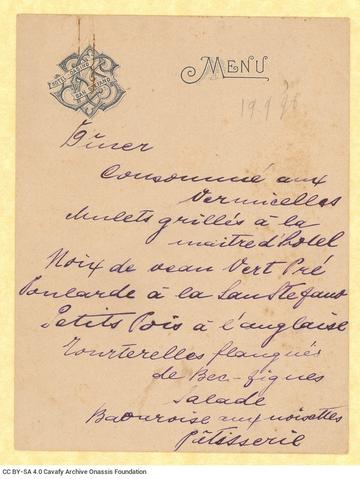 HOTEL CASINO
SAN STEFANO
MENU
19.9.96
Dîner
Consommé aux
Vermicelles
Mulets grillés à la
maitre d'hotel
Noix de veau Vert Pré
Poularde à la San Stefano
Petits Pois à l'anglaise
Tourterelles flanqués
de Bec-figues
Salade
aux noisettes
Pâtisserie
CC BY-SA 4.0 Cavafy Archive Onassis Foundation